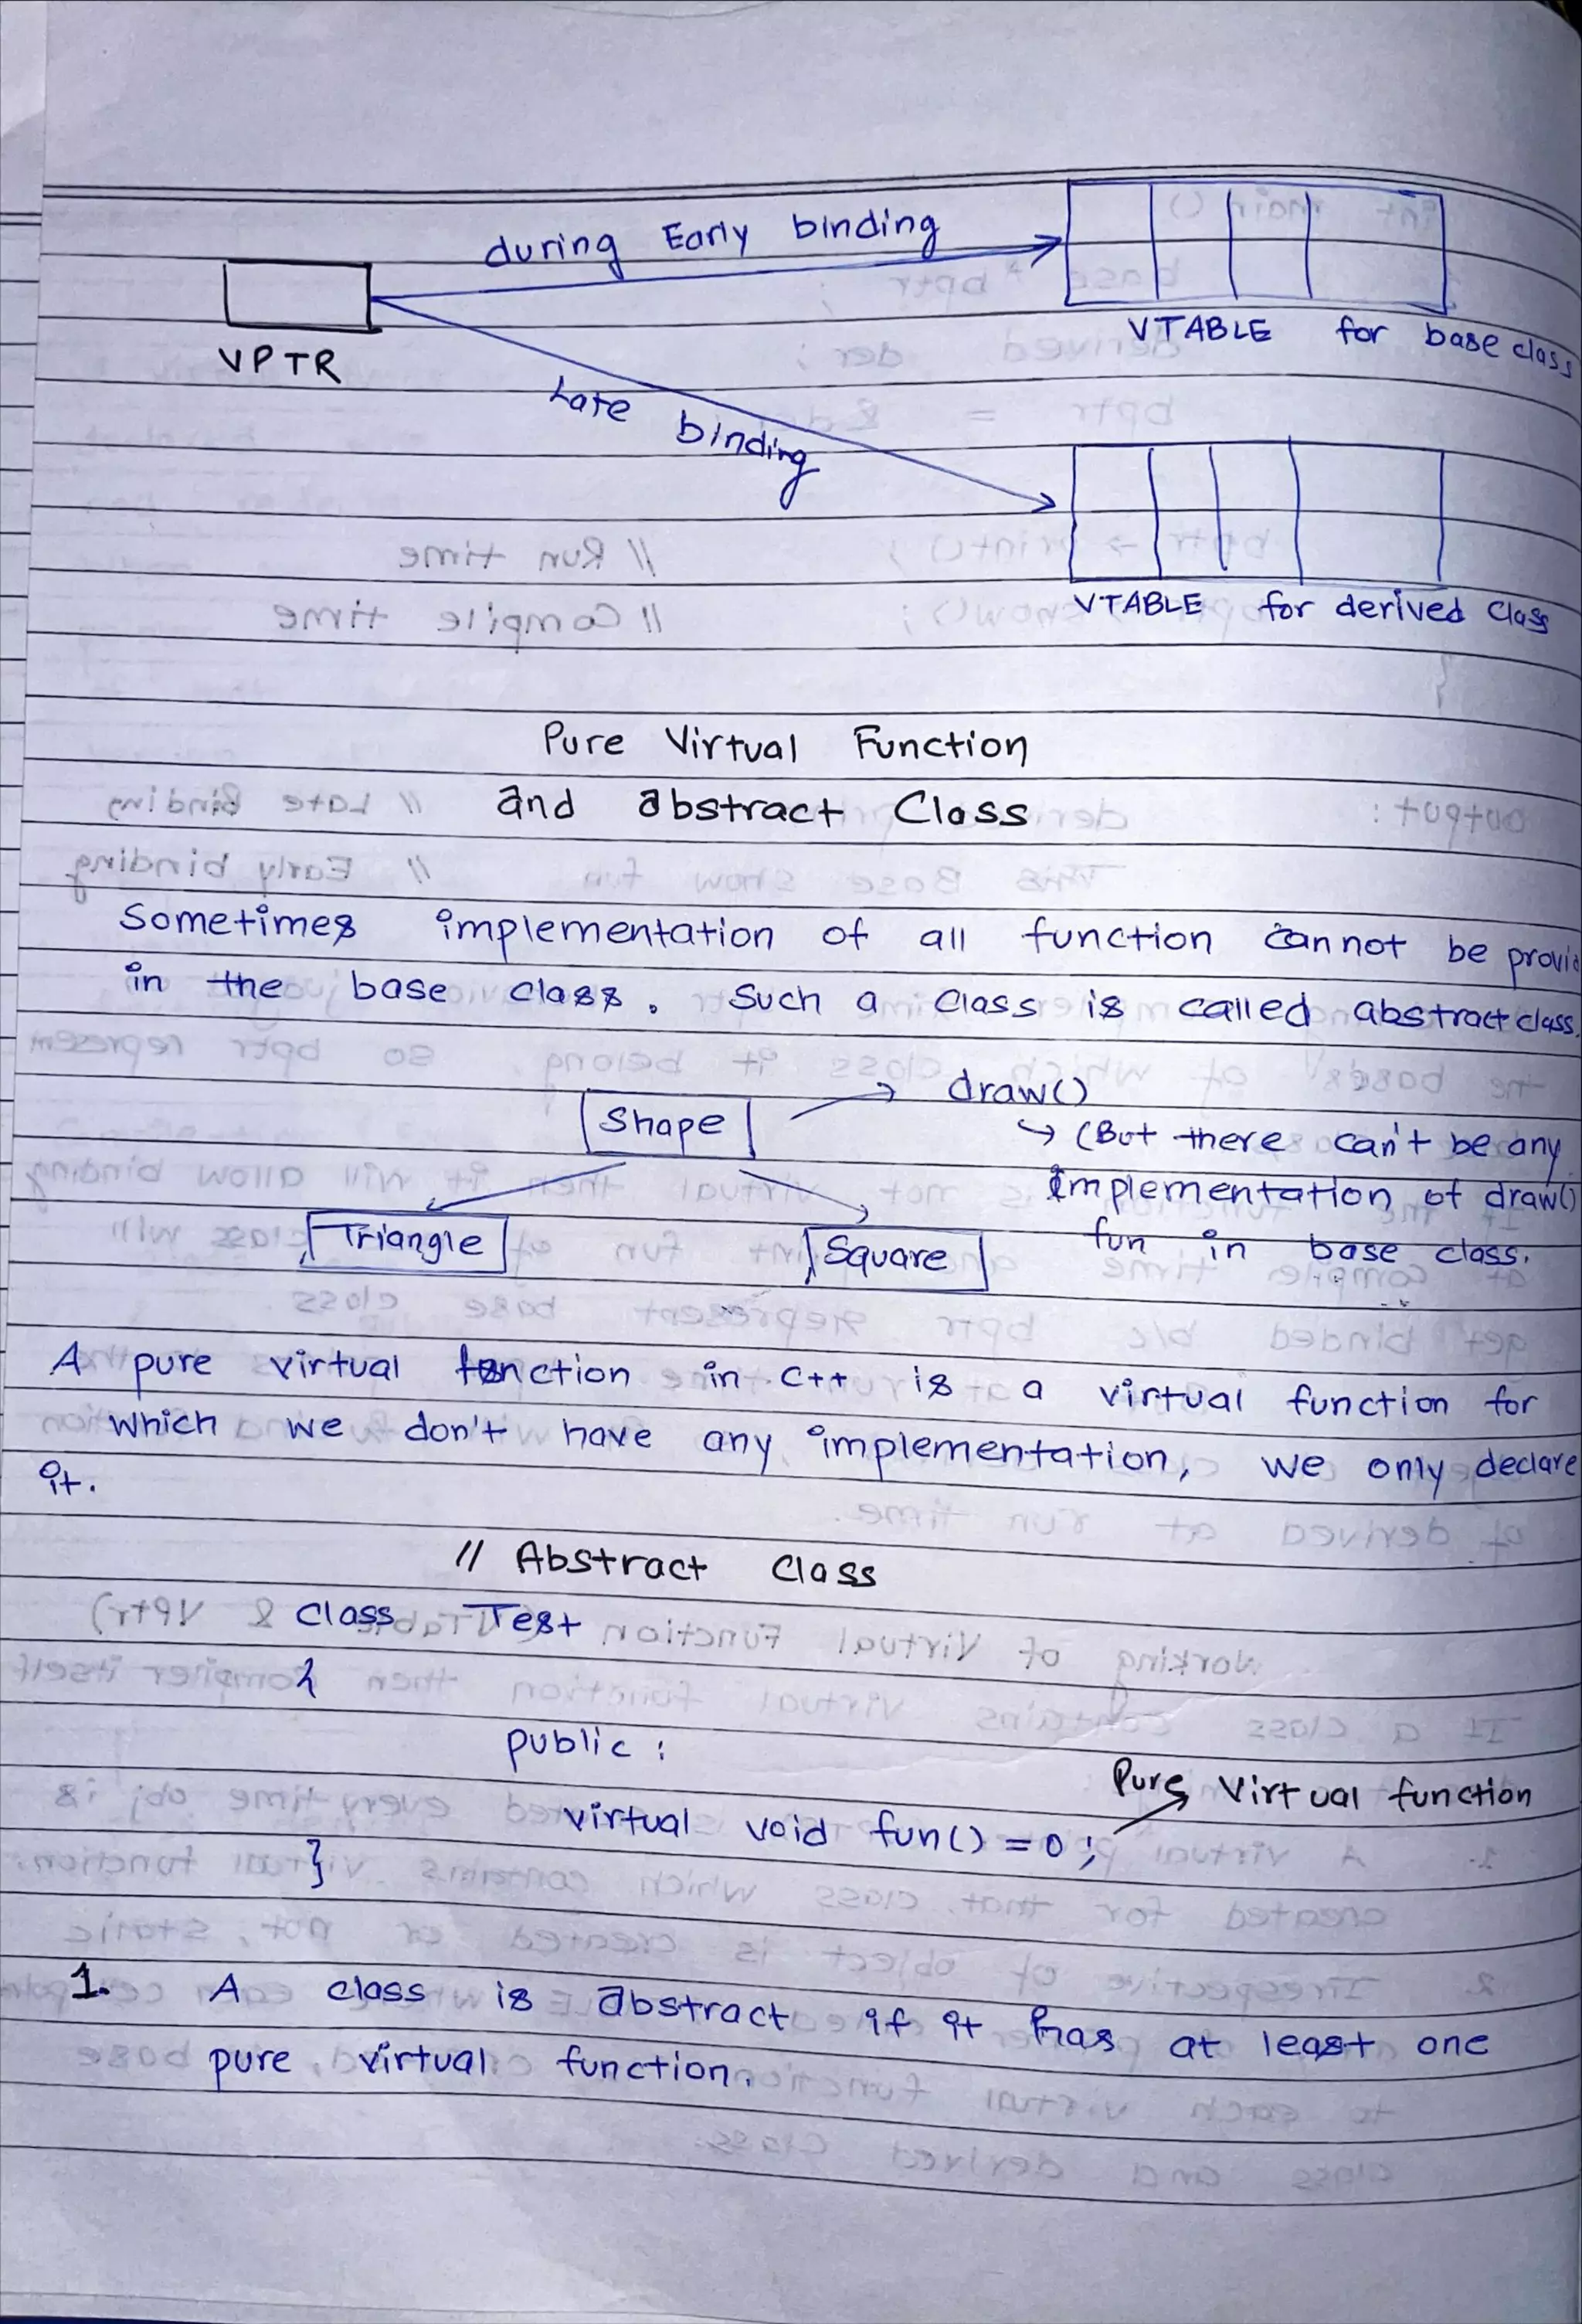 during Early binding
VPTR
VTABLE for base class
Late binding
VTABLE for derived class
Pure Virtual Function
and abstract Class
Sometimes implementation of all function cannot be
in the base class. Such a class is called abstract class.
Shape
draw()
↳ (But there can't be any
implementation of draw()
fun in base class.
Triangle
Square
A pure virtual function in C++ is a virtual function for
which we don't have any implementation, we only declare
it.
// Abstract Class
class Test
{
public :
Pure Virtual function
virtual void fun() = 0 ;
}
1. A class is abstract if it has at least one
pure virtual function.